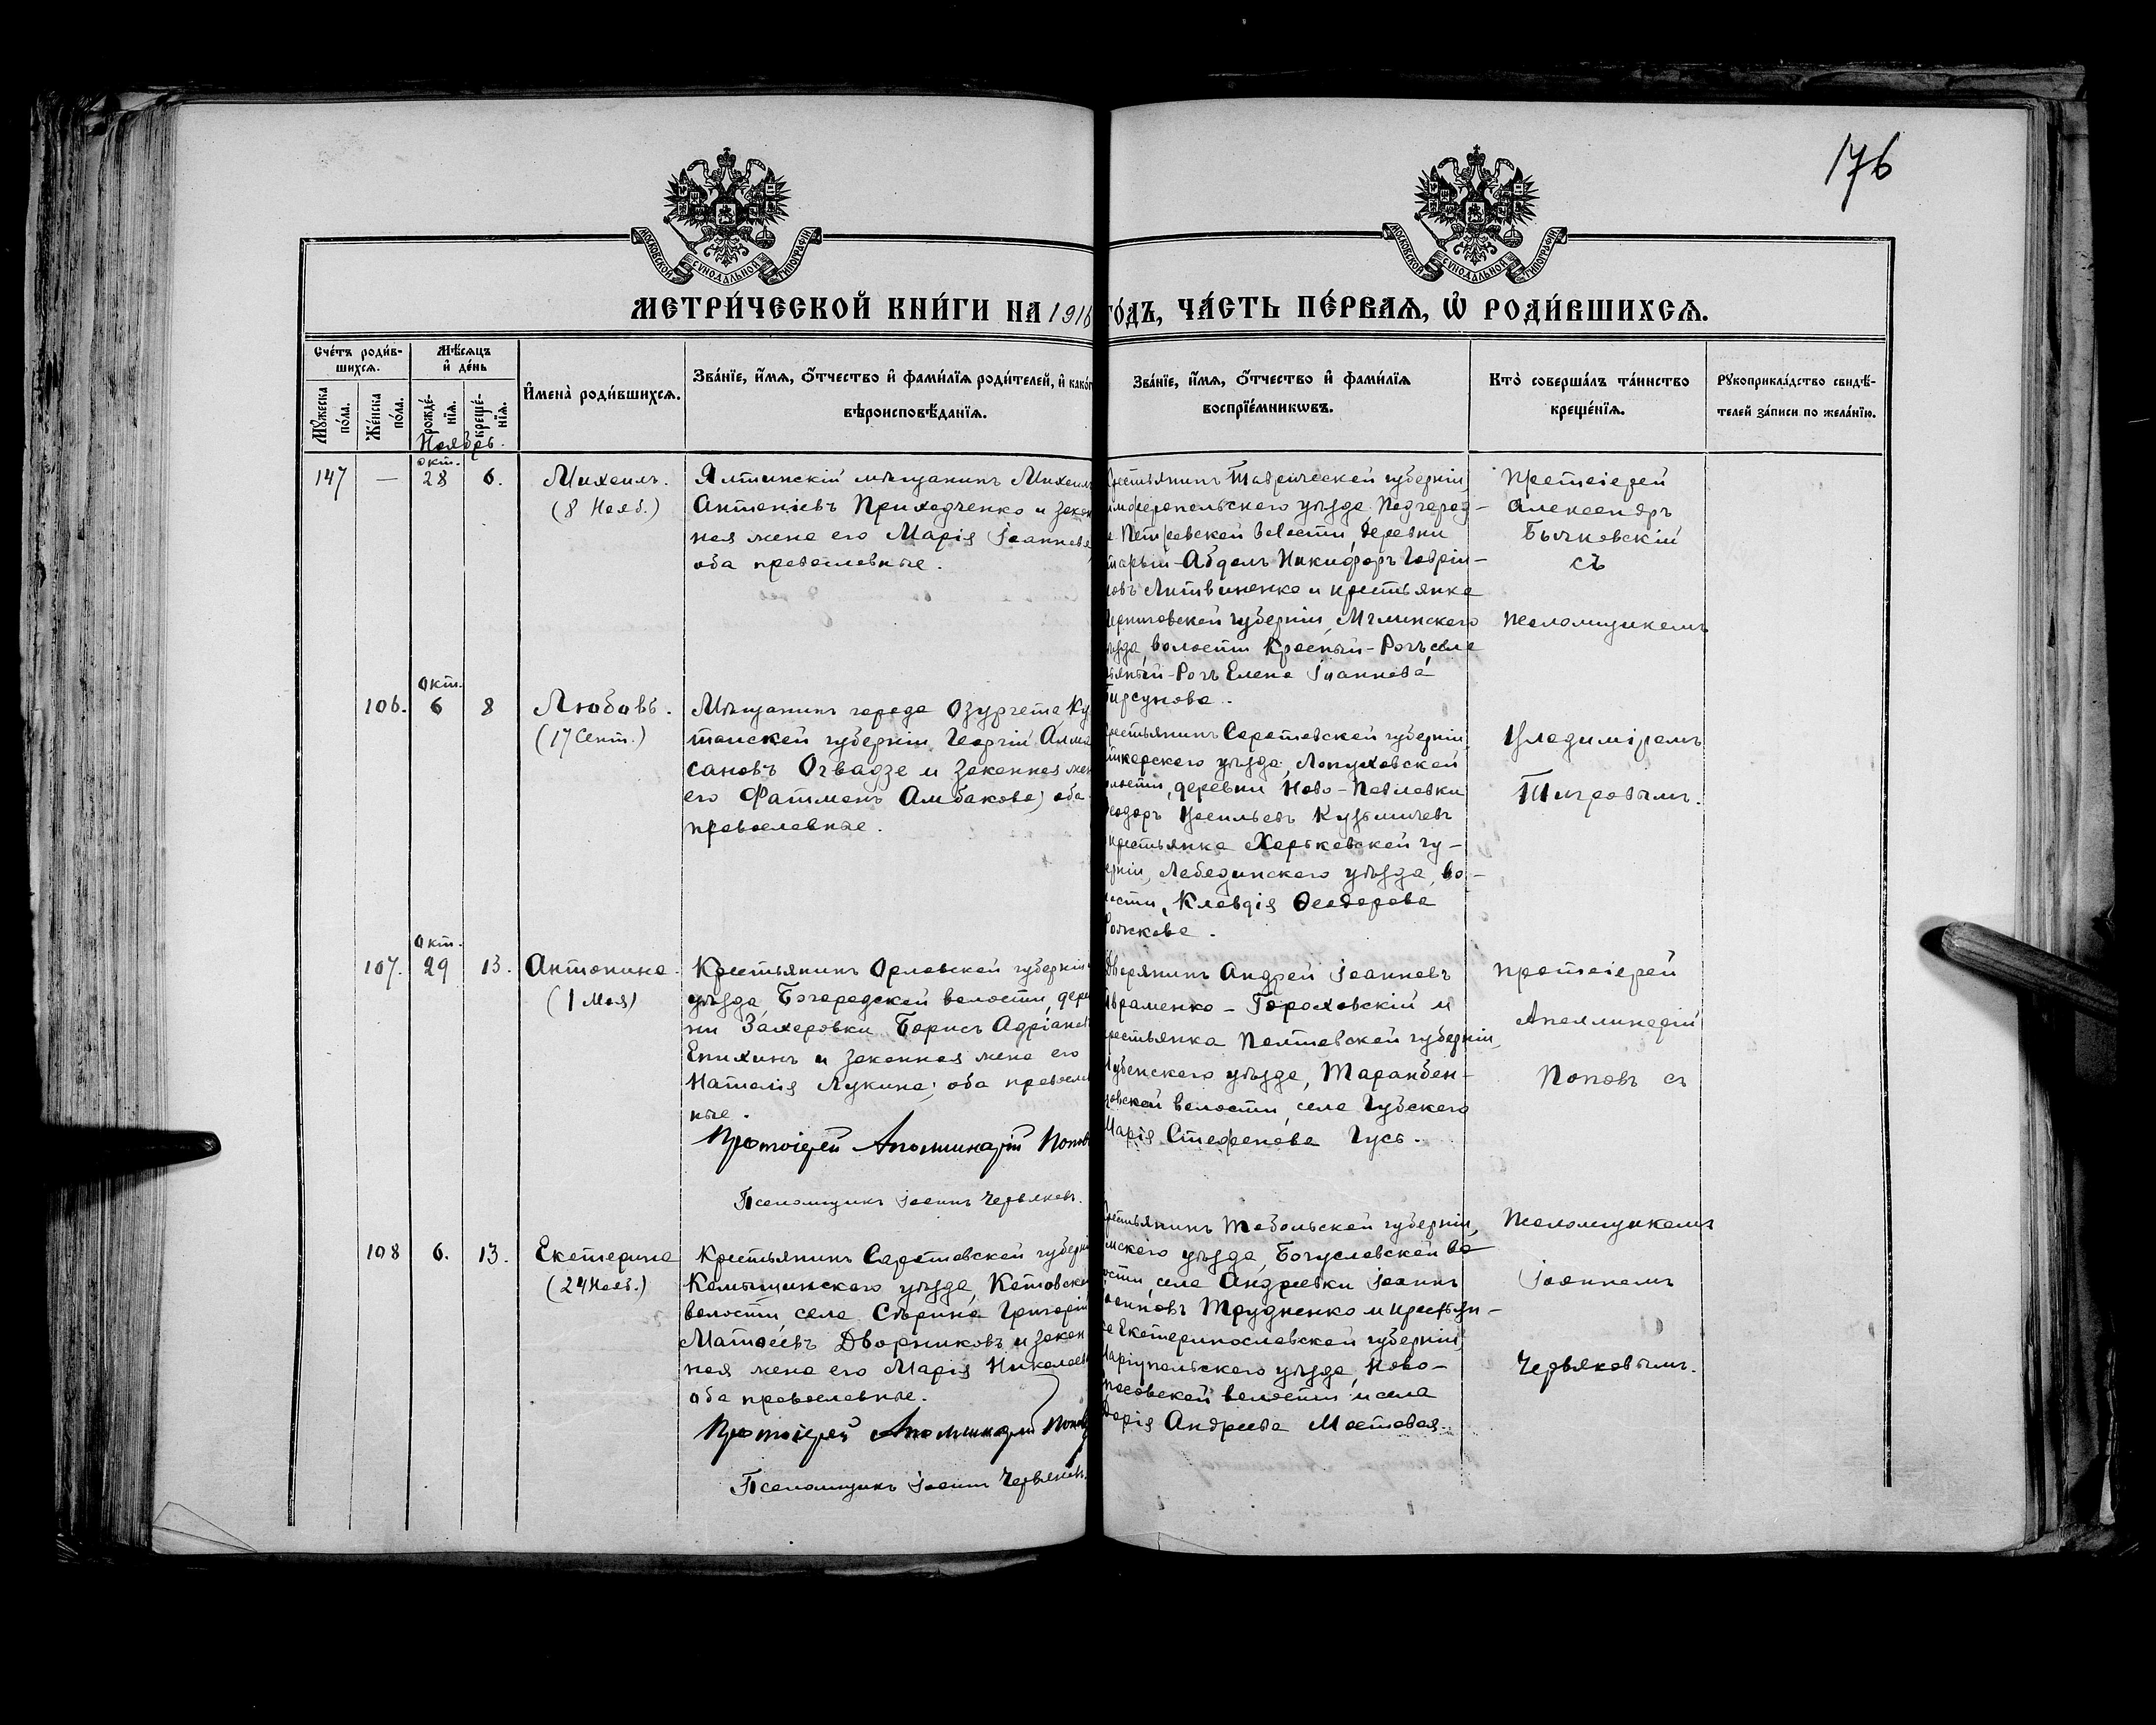 176
МОСКОВСКОЙ СУНОДАЛЬНОЙ ТИПОГРАФІИ
МОСКОВСКОЙ СУНОДАЛЬНОЙ ТИПОГРАФІИ
МЕТРИ́ЧЕСКОЙ КНИ́ГИ НА 1916 ГО́ДЪ, ЧА́СТЬ ПЕ́РВАѦ, Ѡ҆ РОДИ́ВШИХСѦ.
Сче́тъ роди́в-
шихсѧ.
Мꙋ́жеска по́ла.
Же́нска по́ла.
Мѣ́сѧцъ
и҆ де́нь
рожде́-
нїѧ.
креще́-
нїѧ.
И҆мена̀ роди́вшихсѧ.
Зва́нїе, и҆́мѧ, ѻ҆́тчество и҆ фами́лїѧ роди́телей, и҆ како́г
вѣроисповѣ́данїѧ.
Зва́нїе, и҆́мѧ, ѻ҆́тчество и҆ фами́лїѧ
воспрїе́мникѡвъ.
Кто̀ соверша́лъ та́инство
креще́нїѧ.
Рꙋкоприкла́дство свидѣ́-
телей за́писи по жела́нїю.
Ноябрь.
147 — окт. 28 6. Михаилъ.
(8 Нояб.)
Ялтинскій мѣщанинъ Михаилъ
Антоніевъ Приходченко и закон
ная жена его Марія Іоаннова,
оба православные.
крестьянинъ Таврической губерніи,
имферопольскаго уѣзда Подгород-
Петровской волости, деревни
тарый-Абдалъ Никифоръ Гаврии-
ловъ Литвиненко и крестьянка
Черниговской губерніи, Мглинскаго
уѣзда, волости Красный-Рогъ, села
Рогъ Елена Іоаннова
Тирсунова.
Протоіерей
Александръ
Бычковскій
съ
псаломщикомъ
Владиміромъ
Тигровымъ.
106. окт. 6 8 Любовь.
(17 Сент.)
Мѣщанинъ города Озургета, Ку
таиской губерніи, Георгій Алма
сановъ Огвадзе и законная жен
его Фатманъ Амбакова; оба
православные.
крестьянинъ Саратовской губерніи,
уѣзда, Лопуховской
волости, деревни Ново-Павловки
еодоръ Васильевъ Кузьмичевъ
крестьянка Харьковской гу-
берніи, Лебединскаго уѣзда, во-
лости, Клавдія Ѳеодорова
107. окт. 29 13. Антонина.
(1 Мая)
Крестьянинъ Орловской губерніи
уѣзда, Богородской волости, дерев
ни Захаровки Борисъ Адріановъ
Епихинъ и законная жена его
Наталія Лукина; оба православ
ные.
Протоіерей Аполлинарій Поповъ
Псаломщикъ Іоаннъ Червяковъ.
Дворянинъ Андрей Іоанновъ
Авраменко-Гороховскій и
крестьянка Полтавской губерніи,
Лубенскаго уѣзда, Таранбен-
ковской волости села Губскаго
Марія Стефанова Гусь.
протоіерей
Аполлинарій
Поповъ съ
псаломщикомъ
Іоанномъ
Червяковымъ.
108 6. 13. Екатерина
(24 Нояб.)
Крестьянинъ Саратовской губерні
Камышинскаго уѣзда, Котовской
волости, села Сѣрина Григорій
Матѳеевъ Дворниковъ и закон
ная жена его Марія Николаева
оба православные.
Протоіерей Аполлинарій Поповъ
Псаломщикъ Іоаннъ Червяковъ.
крестьянинъ Тобольской губерніи,
уѣзда, Богуславской во-
лости, села Андреевки Іоаннъ
Трудненко и крестьян-
ка Екатеринославской губерніи,
Маріупольскаго уѣзда, Ново-
пасовской волости и села
Дарія Андреева Мостовая.